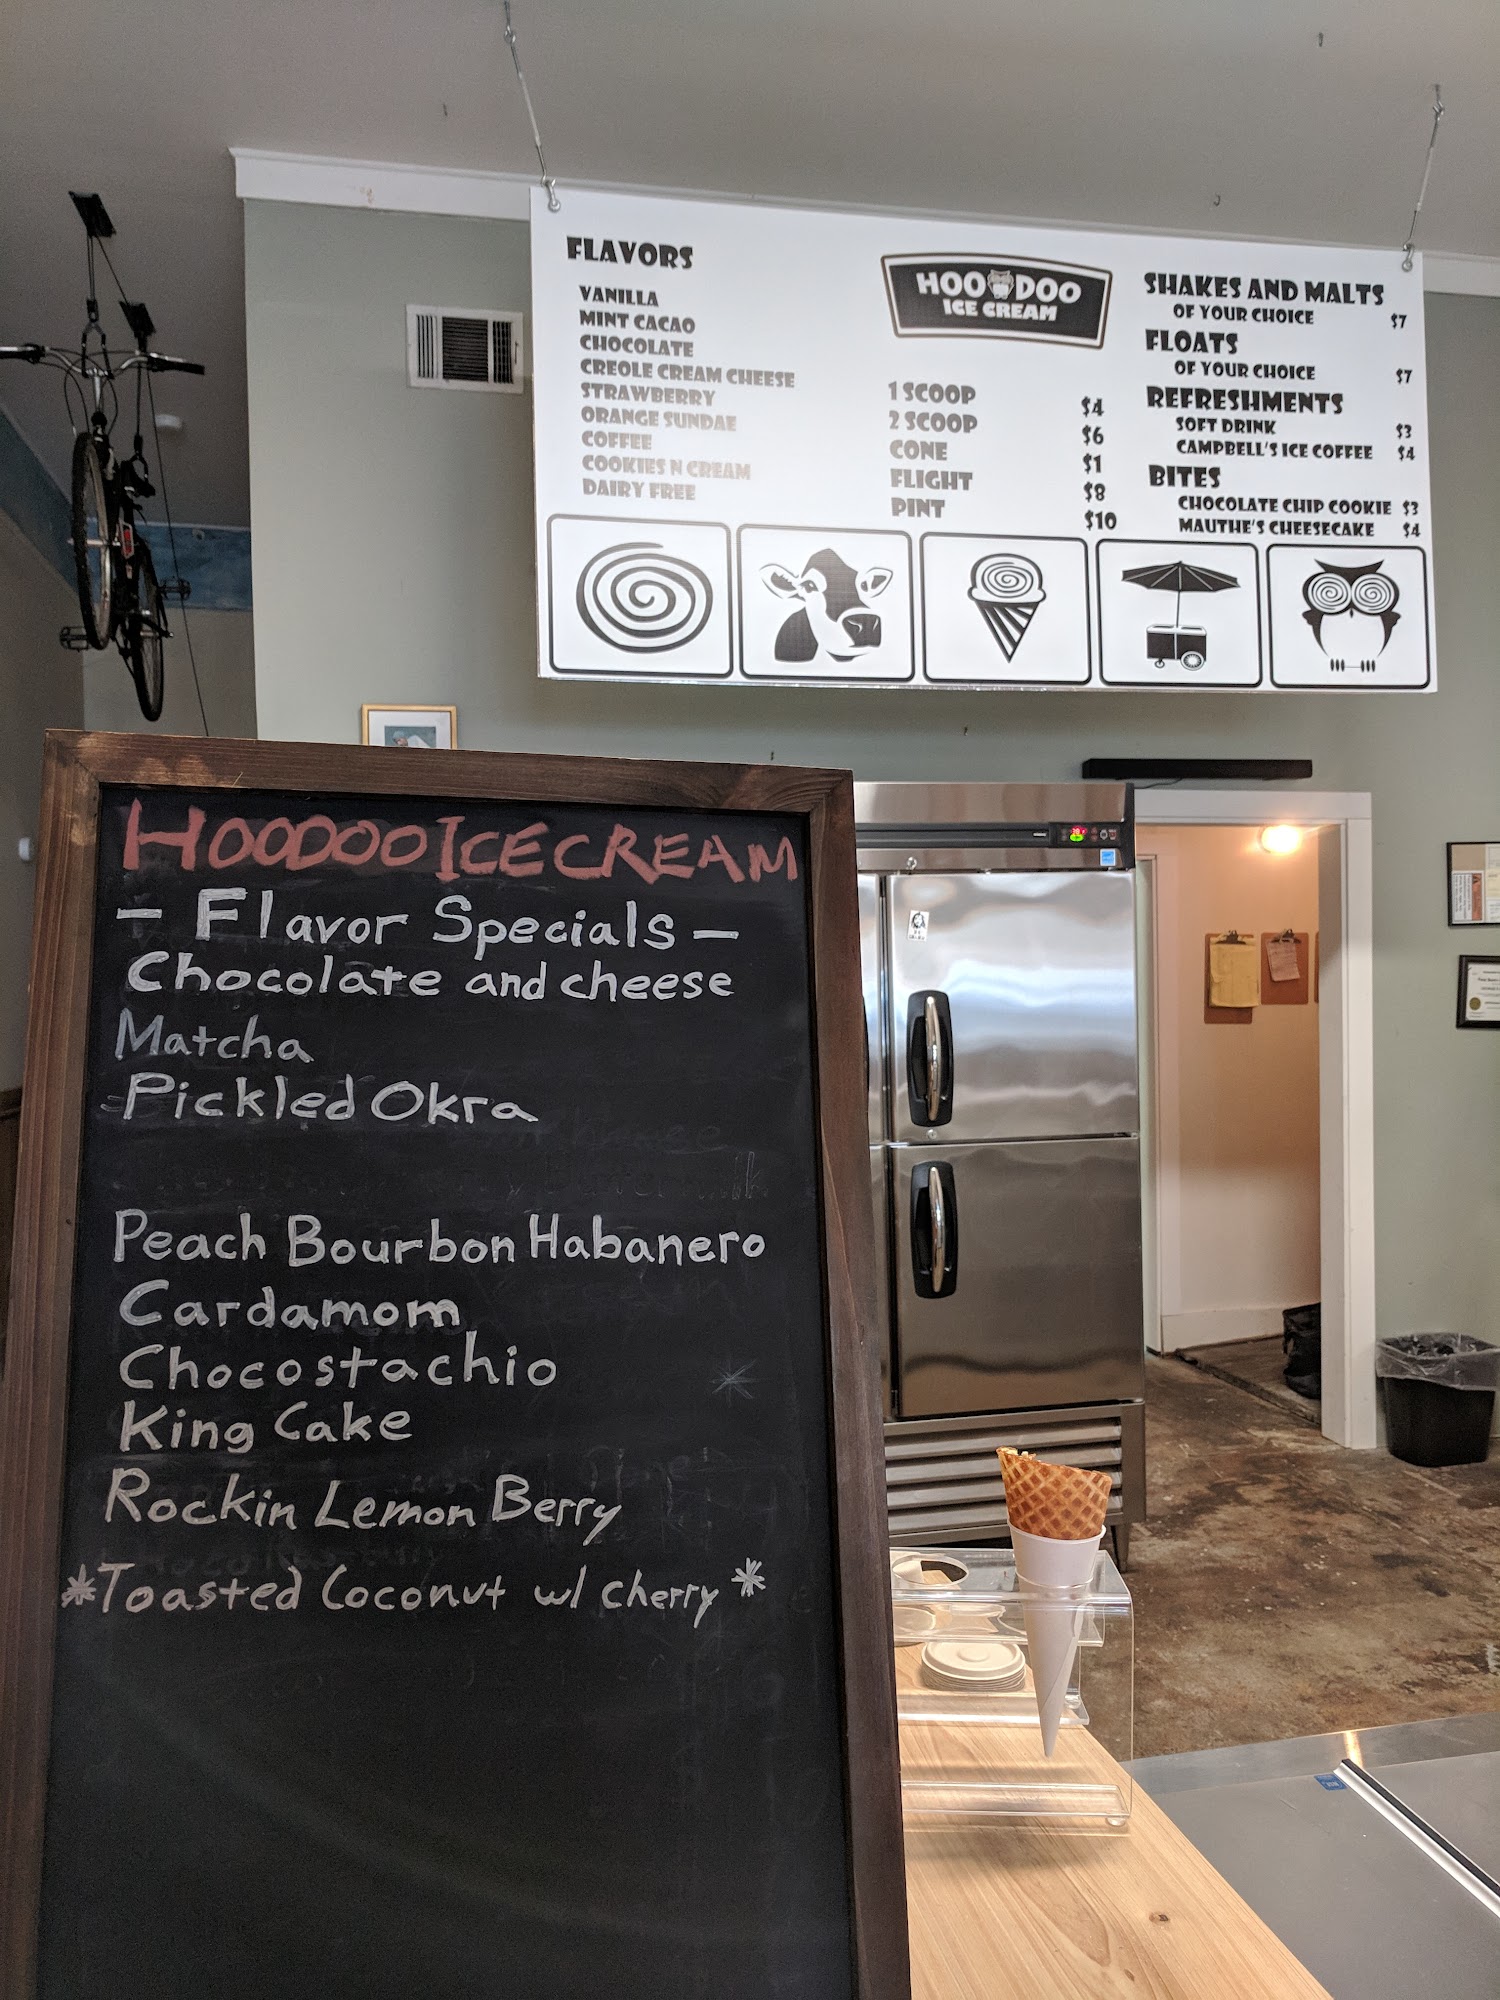 FLAVORS
VANILLA
MINT CACAO
CHOCOLATE
CREOLE CREAM CHEESE
STRAWBERRY
ORANGE SUNDAE
COFFEE
COOKIES N CREAM
DAIRY FREE
HOODOO
ICE CREAM
1 SCOOP $4
2 SCOOP $6
CONE $1
FLIGHT $8
PINT $10
SHAKES AND MALTS
OF YOUR CHOICE $7
FLOATS
OF YOUR CHOICE $7
REFRESHMENTS
SOFT DRINK $3
CAMPBELL'S ICE COFFEE $4
BITES
CHOCOLATE CHIP COOKIE $3
MAUTHE'S CHEESECAKE $4
HOODOO ICE CREAM
- Flavor Specials -
Chocolate and cheese
Matcha
Pickled Okra
Peach Bourbon Habanero
Cardamom
Chocostachio
King Cake
Rockin Lemon Berry
*Toasted Coconut w/ cherry *